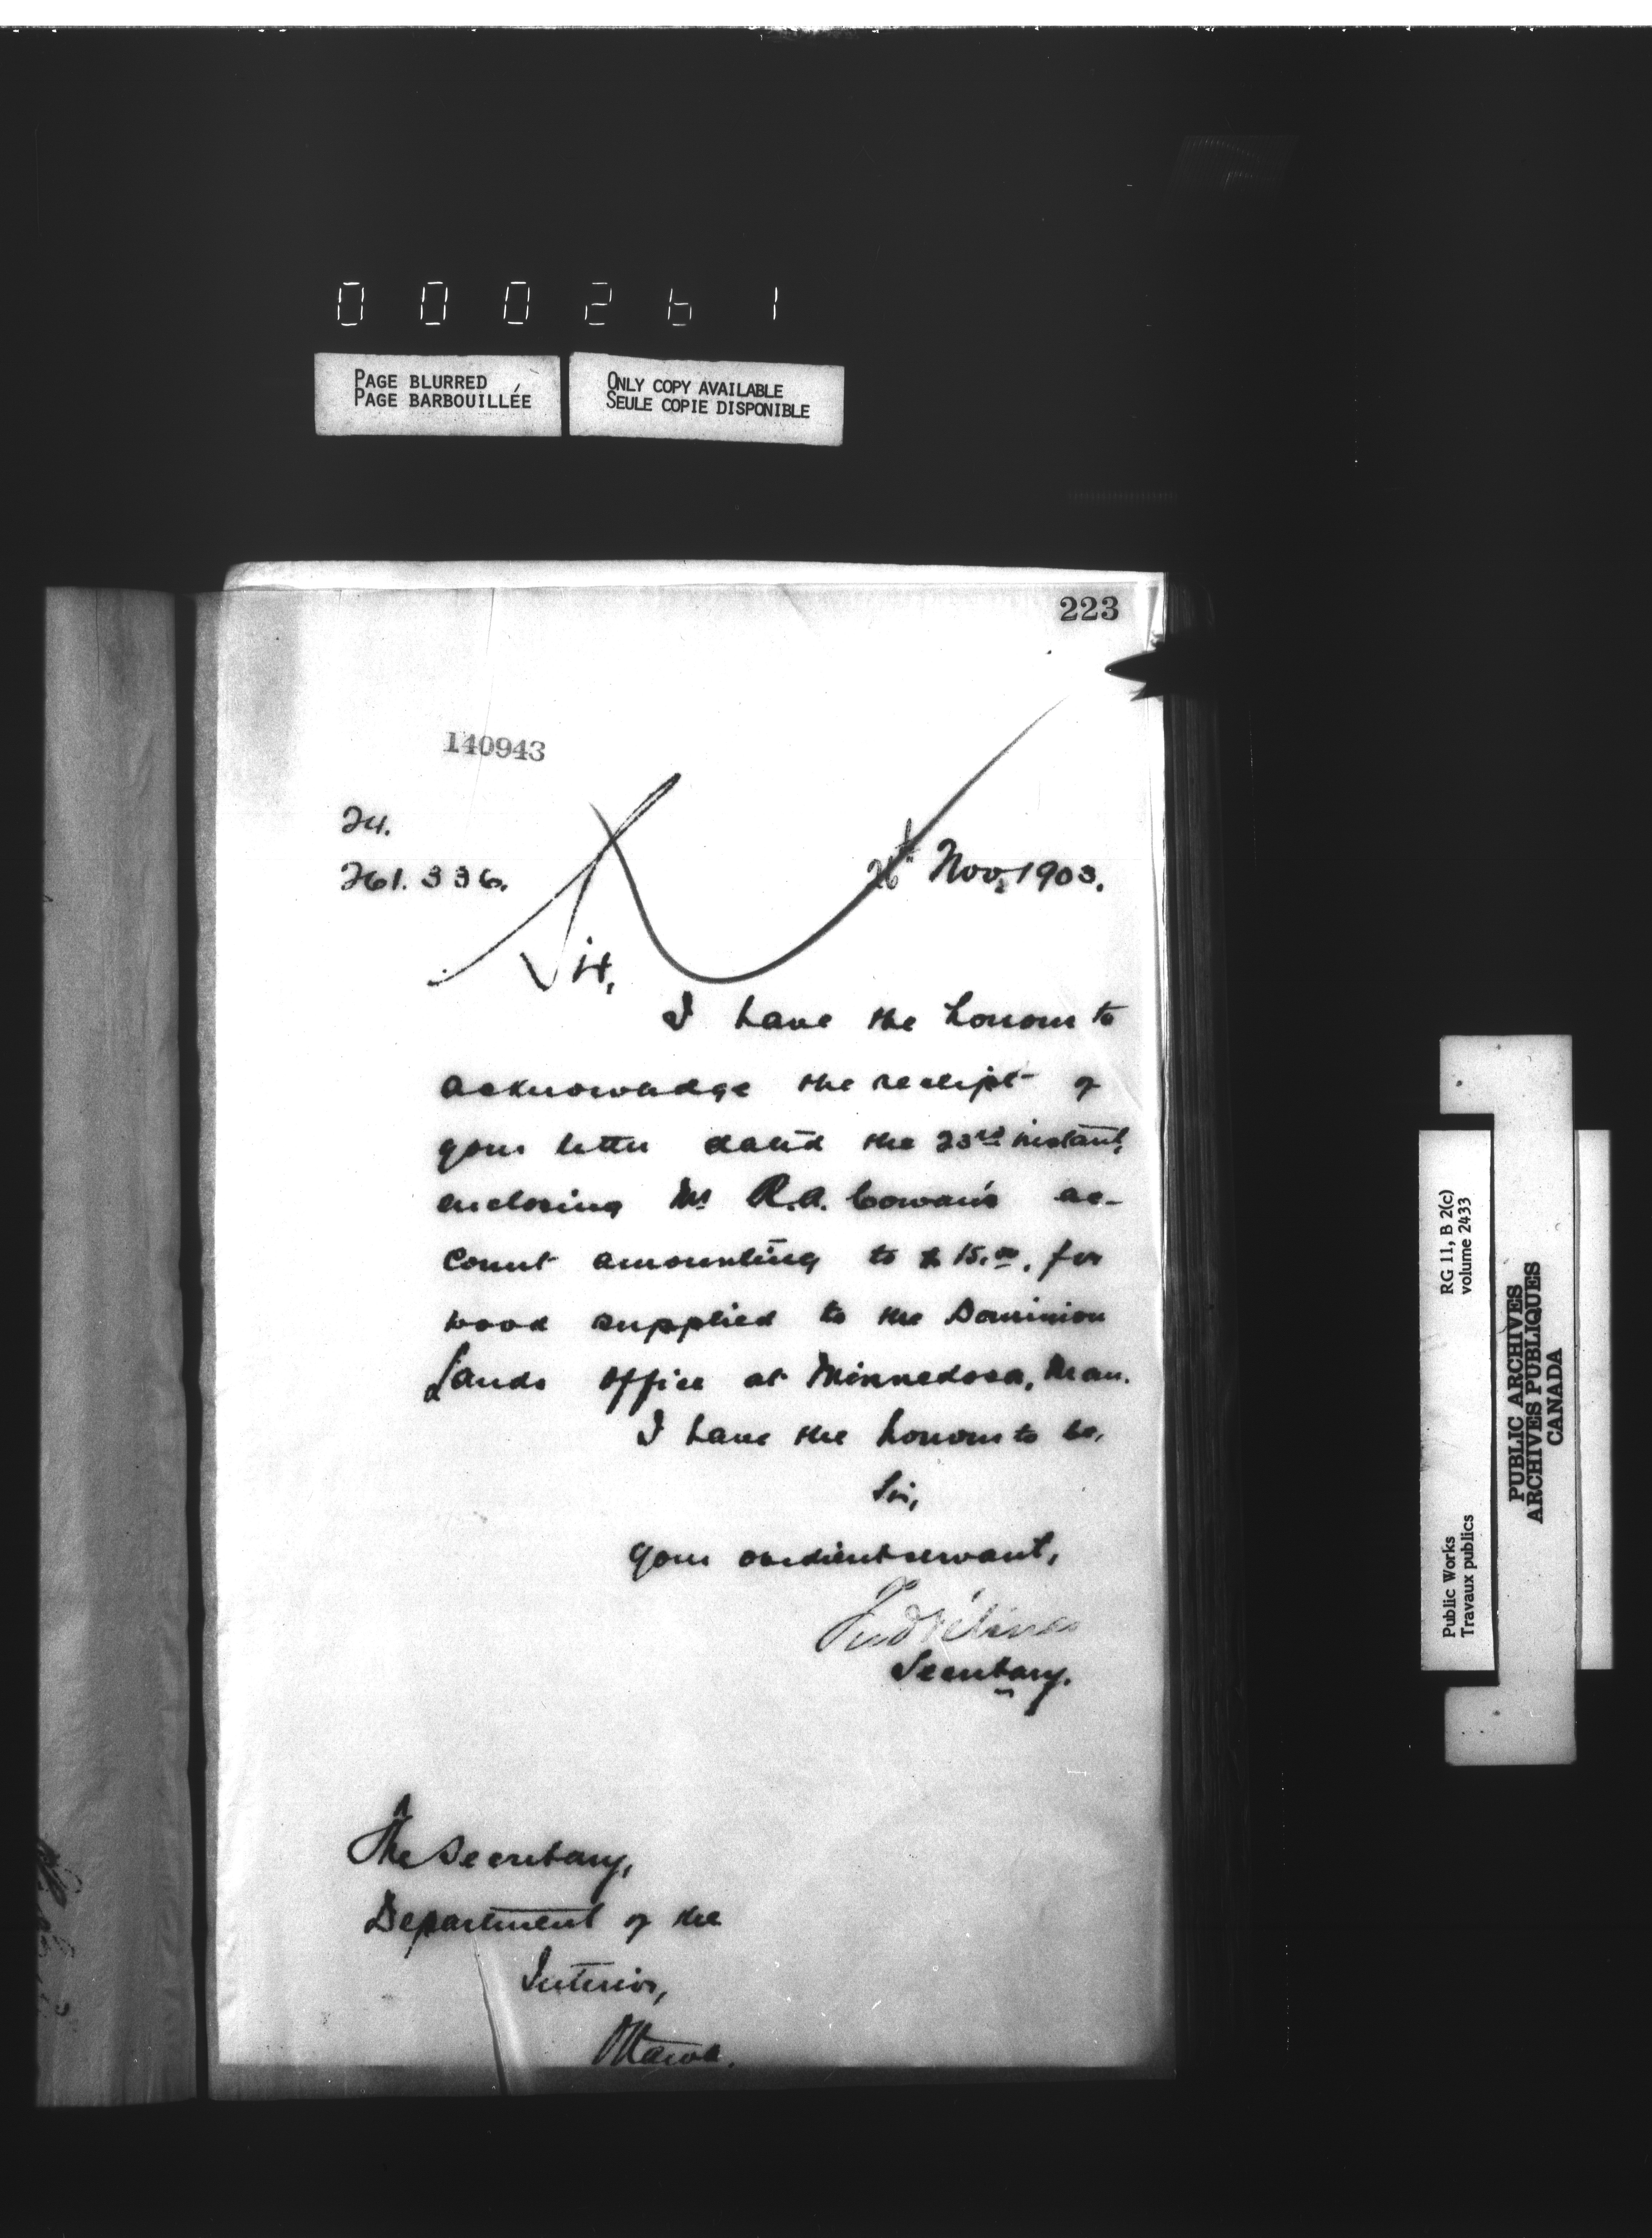 000261
PAGE BLURRED
PAGE BARBOUILLÉE
ONLY COPY AVAILABLE
SEULE COPIE DISPONIBLE
223
140943
24.
261.336.
26th Nov, 1903.
Sir,
I have the honour to
acknowledge the receipt of
your letter dated the 23rd instant,
enclosing Mr R.A. Cowan's ac-
count amounting to $15.00, for
wood supplied to the Dominion
Lands Office at Minnedosa, Man.
I have the honour to be,
Sir,
your obedient servant,
Secretary.
The Secretary,
Department of the
Interior,
Ottawa.
Public Works
Travaux publics
RG 11, B 2(c)
volume 2433
PUBLIC ARCHIVES
ARCHIVES PUBLIQUES
CANADA